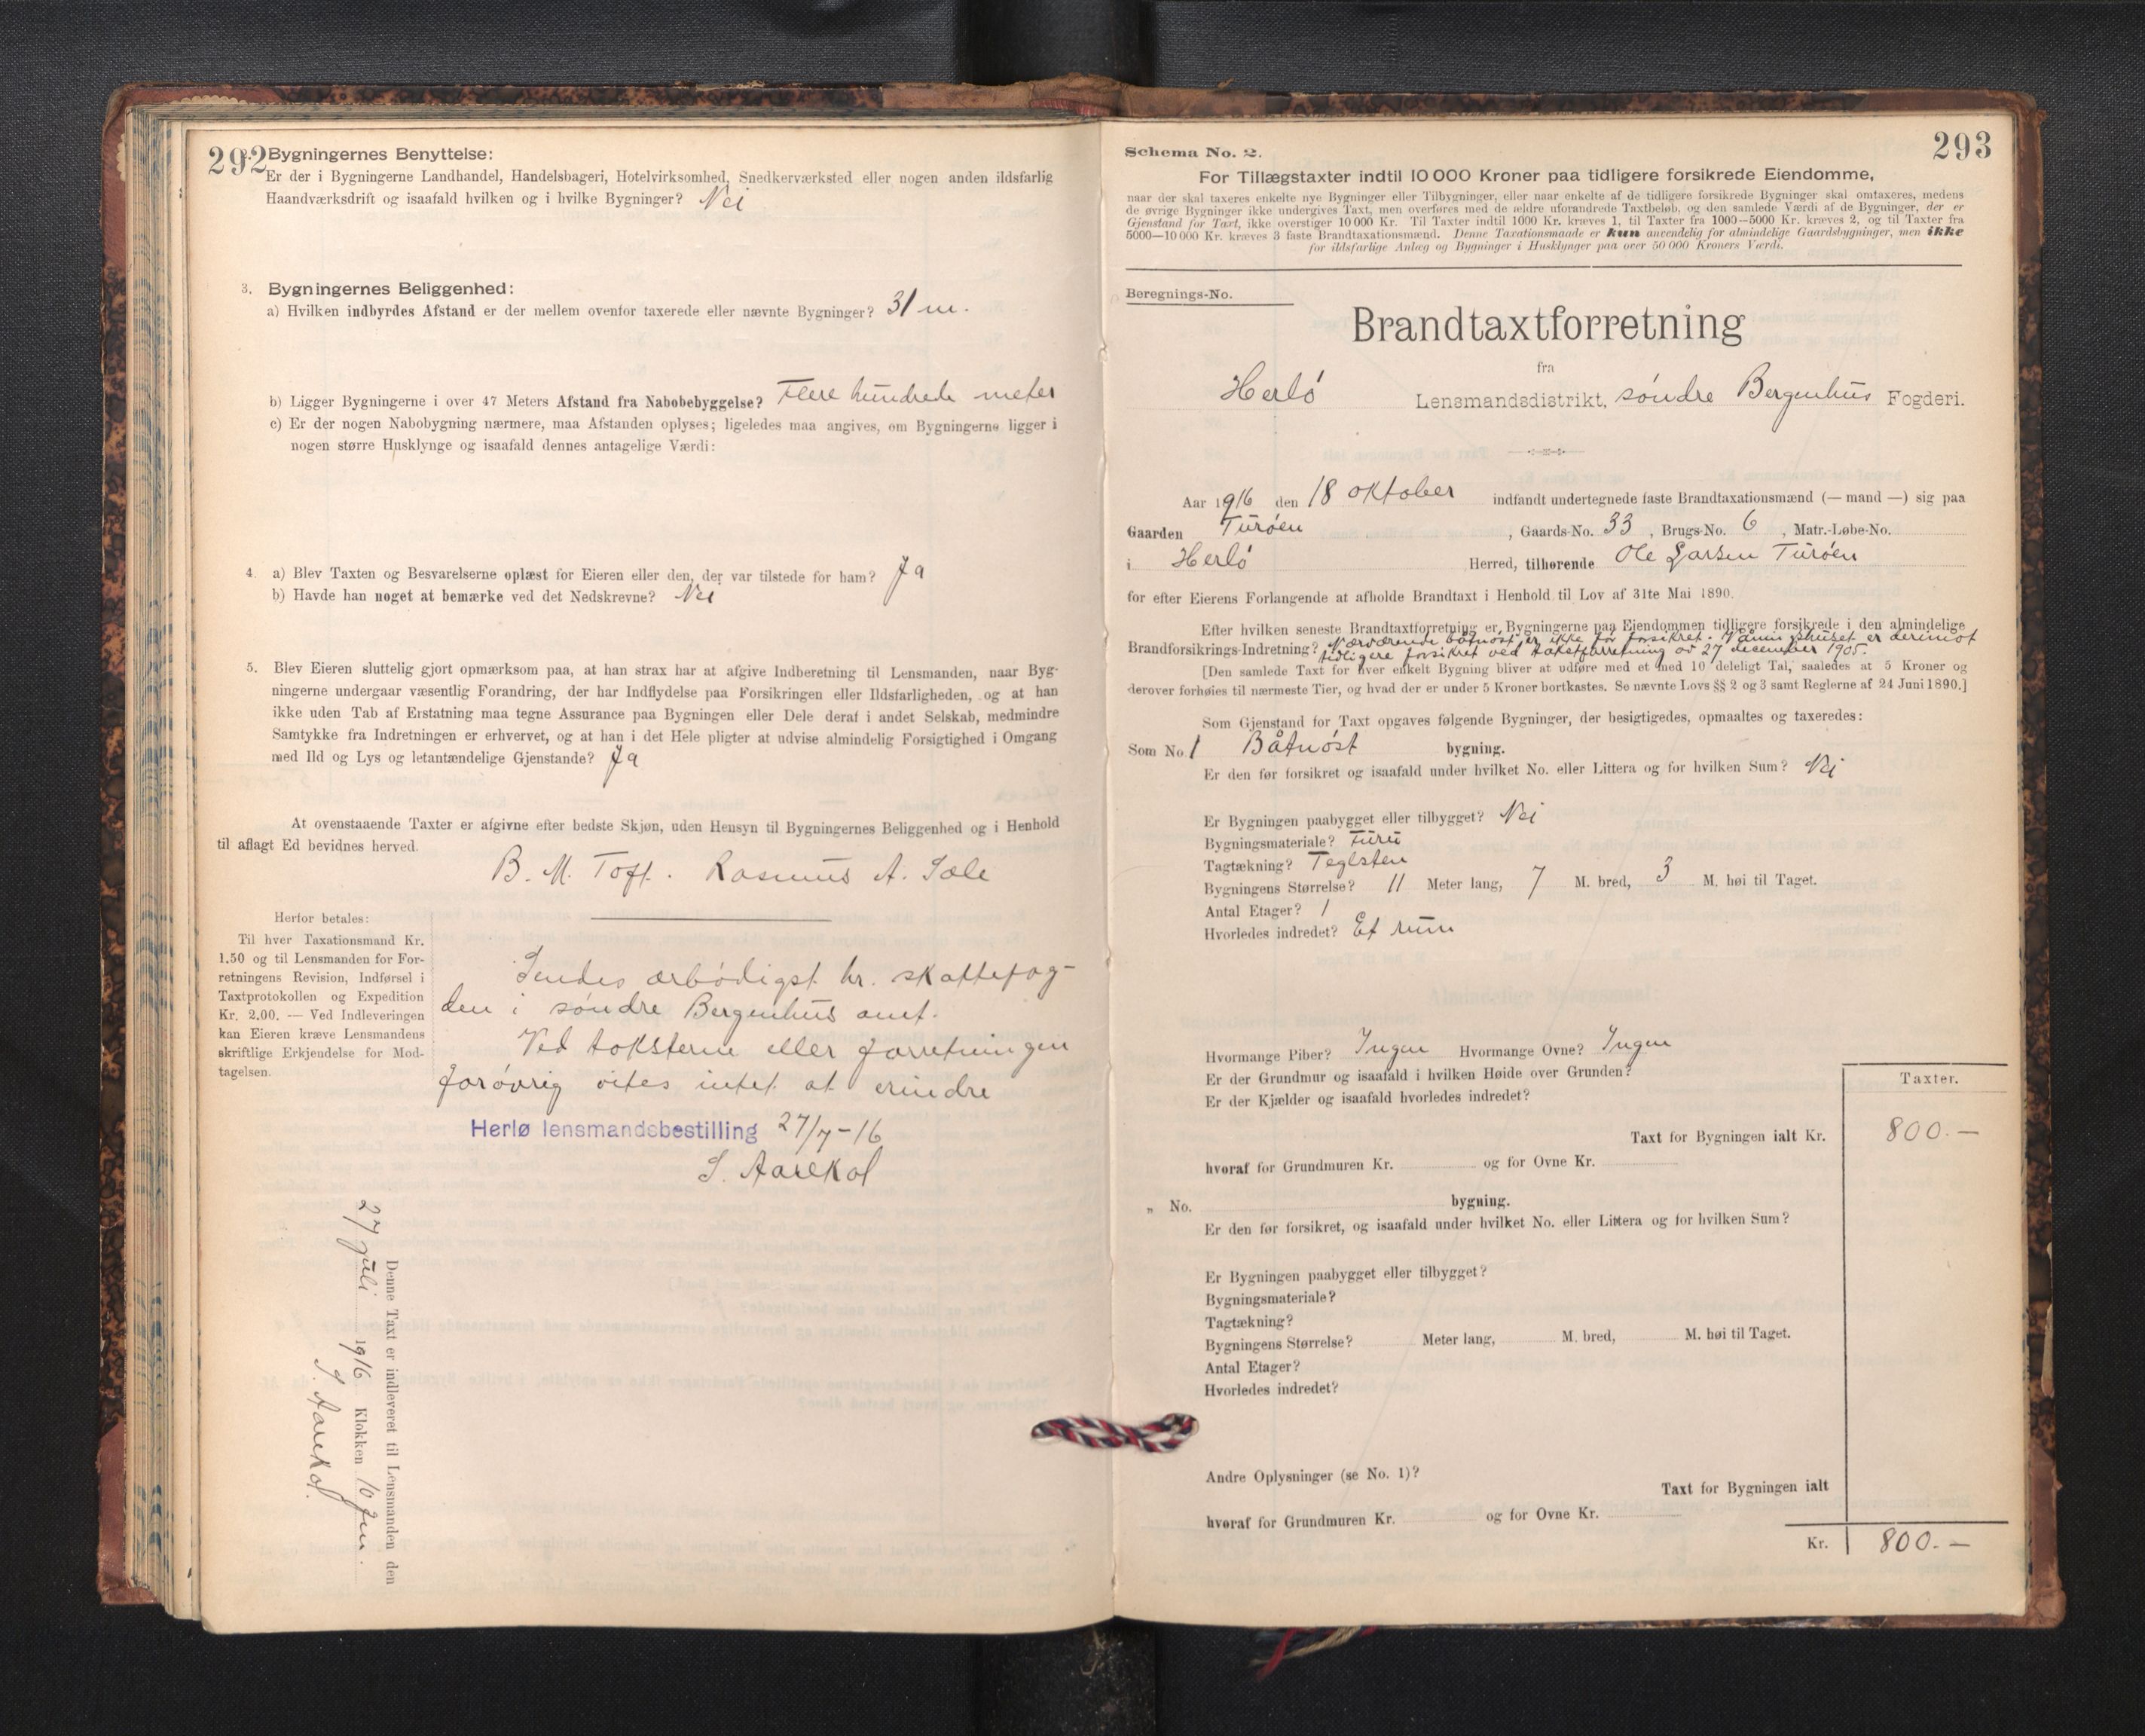 292
Bygningernes Benyttelse:
Er der i Bygningerne Landhandel, Handelsbageri, Hotelvirksomhed, Snedkerværksted eller nogen anden ildsfarlig
Haandværksdrift og isaafald hvilken og i hvilke Bygninger? Nei
3. Bygningernes Beliggenhed:
a) Hvilken indbyrdes Afstand er der mellem ovenfor taxerede eller nævnte Bygninger? 31 m.
b) Ligger Bygningerne i over 47 Meters Afstand fra Nabobebyggelse? Flere hundrede meter
c) Er der nogen Nabobygning nærmere, maa Afstanden oplyses; ligeledes maa angives, om Bygningerne ligger i
nogen større Husklynge og isaafald dennes antagelige Værdi:
4. a) Blev Taxten og Besvarelserne oplæst for Eieren eller den, der var tilstede for ham? Ja
b) Havde han noget at bemærke ved det Nedskrevne? Nei
5. Blev Eieren sluttelig gjort opmærksom paa, at han strax har at afgive Indberetning til Lensmanden, naar Byg-
ningerne undergaar væsentlig Forandring, der har Indflydelse paa Forsikringen eller Ildsfarligheden, og at han
ikke uden Tab af Erstatning maa tegne Assurance paa Bygningen eller Dele deraf i andet Selskab, medmindre
Samtykke fra Indretningen er erhvervet, og at han i det Hele pligter at udvise almindelig Forsigtighed i Omgang
med Ild og Lys og letantændelige Gjenstande? Ja
At ovenstaaende Taxter er afgivne efter bedste Skjøn, uden Hensyn til Bygningernes Beliggenhed og i Henhold
til aflagt Ed bevidnes herved.
B. M. Toft. Rasmus A. Sæle
Herfor betales:
Til hver Taxationsmand Kr.
1.50 og til Lensmanden for For-
retningens Revision, Indførsel i
Taxtprotokollen og Expedition
Kr. 2.00. — Ved Indleveringen
kan Eieren kræve Lensmandens
skriftlige Erkjendelse for Mod-
tagelsen.
Sendes ærbødigst hr. skattefog-
den i søndre Bergenhus amt.
Ved taksterne eller forretningen
forøvrig vites intet at erindre
Herlø lensmandsbestilling 27/7-16
S. Aarekol
Denne Taxt er indleveret til Lensmanden den
27 juli 1916 Klokken 10 fm.
S. Aarekol.
293
Schema No. 2.
For Tillægstaxter indtil 10 000 Kroner paa tidligere forsikrede Eiendomme,
naar der skal taxeres enkelte nye Bygninger eller Tilbygninger, eller naar enkelte af de tidligere forsikrede Bygninger skal omtaxeres, medens
de øvrige Bygninger ikke undergives Taxt, men overføres med de ældre uforandrede Taxtbeløb, og den samlede Værdi af de Bygninger, der er
Gjenstand for Taxt, ikke overstiger 10 000 Kr. Til Taxter indtil 1000 Kr. kræves 1, til Taxter fra 1000—5000 Kr. kræves 2, og til Taxter fra
5000—10 000 Kr. kræves 3 faste Brandtaxationsmænd. Denne Taxationsmaade er kun anvendelig for almindelige Gaardsbygninger, men ikke
for ildsfarlige Anlæg og Bygninger i Husklynger paa over 50 000 Kroners Værdi.
Beregnings-No.
Brandtaxtforretning
fra
Herlø Lensmandsdistrikt, søndre Bergenhus Fogderi.
Aar 1916 den 18 oktober indfandt undertegnede faste Brandtaxationsmænd (— mand —) sig paa
Gaarden Turøen, Gaards-No. 33, Brugs-No. 6, Matr.-Løbe-No.
i Herlø Herred, tilhørende Ole Larsen Turøen
for efter Eierens Forlangende at afholde Brandtaxt i Henhold til Lov af 31te Mai 1890.
Efter hvilken seneste Brandtaxtforretning er Bygningerne paa Eiendommen tidligere forsikrede i den almindelige
Brandforsikrings-Indretning? Nærværende båtnøst er ikke før forsikret. Våningshuset er derimot
tidligere forsikret ved takstforretning av 27 december 1905.
[Den samlede Taxt for hver enkelt Bygning bliver at udføre med et med 10 deleligt Tal, saaledes at 5 Kroner og
derover forhøies til nærmeste Tier, og hvad der er under 5 Kroner bortkastes. Se nævnte Lovs §§ 2 og 3 samt Reglerne af 24 Juni 1890.]
Som Gjenstand for Taxt opgaves følgende Bygninger, der besigtigedes, opmaaltes og taxeredes:
Som No. 1 Båtnøst bygning.
Er den før forsikret og isaafald under hvilket No. eller Littera og for hvilken Sum? Nei
Er Bygningen paabygget eller tilbygget? Nei
Bygningsmateriale? Furu
Tagtækning? Teglsten
Bygningens Størrelse? 11 Meter lang, 7 M. bred, 3 M. høi til Taget.
Antal Etager? 1
Hvorledes indredet? Et rum
Hvormange Piber? Ingen Hvormange Ovne? Ingen
Er der Grundmur og isaafald i hvilken Høide over Grunden?
Er der Kjælder og isaafald hvorledes indredet?
Taxter.
Taxt for Bygningen ialt Kr. 800.—
hvoraf for Grundmuren Kr. og for Ovne Kr.
„ No. bygning.
Er den før forsikret, og isaafald under hvilket No. eller Littera og for hvilken Sum?
Er Bygningen paabygget eller tilbygget?
Bygningsmateriale?
Tagtækning?
Bygningens Størrelse? Meter lang, M. bred, M. høi til Taget.
Antal Etager?
Hvorledes indredet?
Andre Oplysninger (se No. 1)?
Taxt for Bygningen ialt
hvoraf for Grundmuren Kr. og for Ovne Kr.
Kr. 800.—